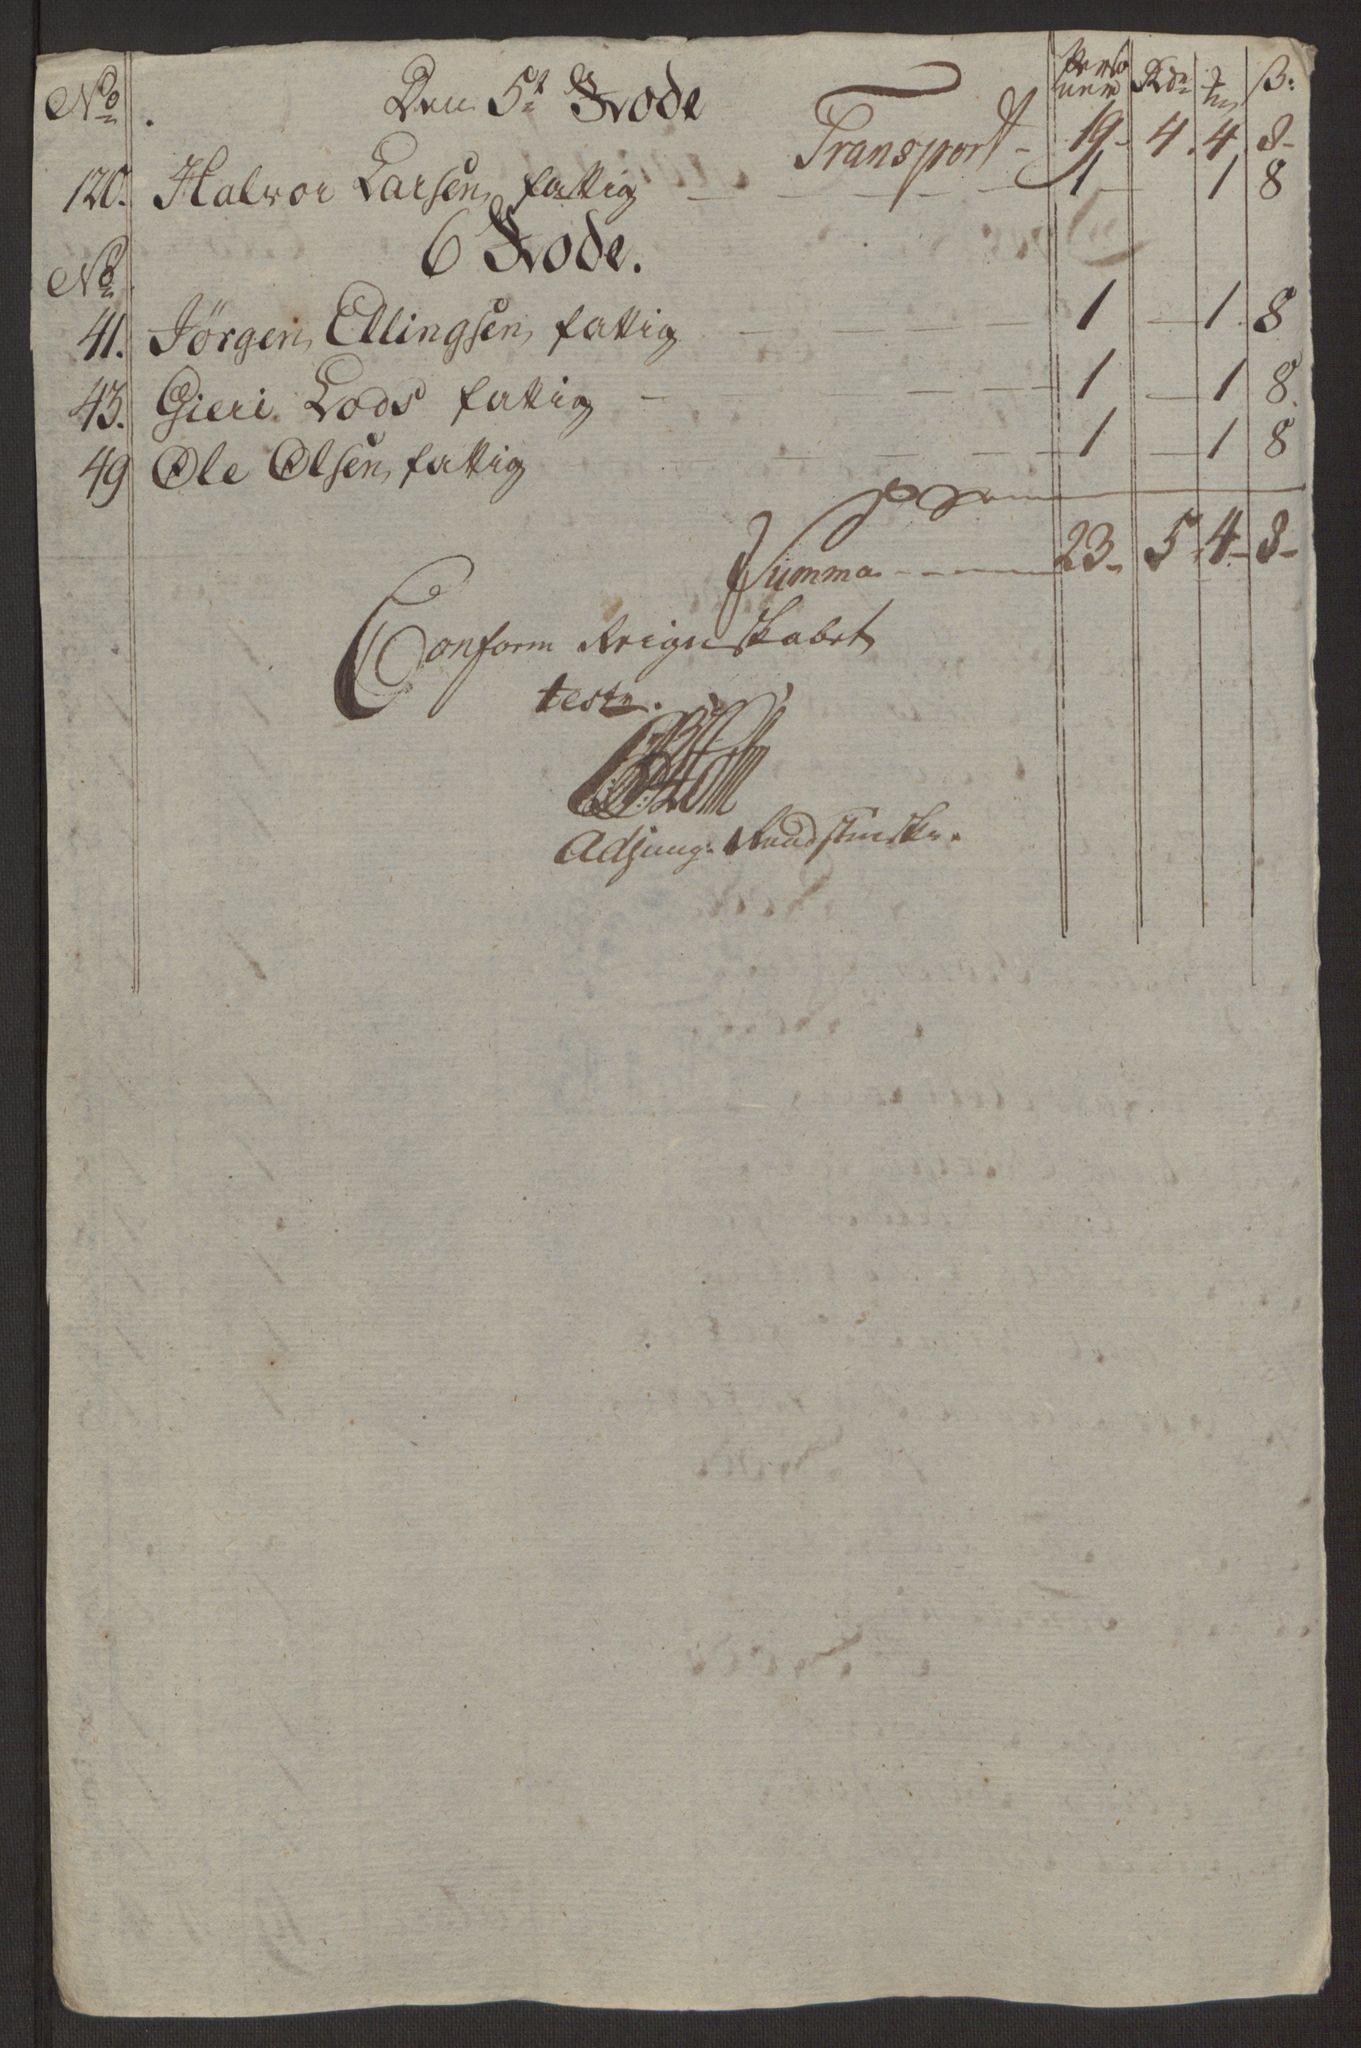 No. Den 5te Rode Perso
ner Rdr ß:
Transport - 19 - 4 . 4 . 8 -
120. Halvor Larsen, fattig 1 1 8
6 Rode.
No.
41. Jörgen Ellingsen, fattig 1 1 8
43. Gieri Lods fattig 1 1 8
49 Ole Olsen, fattig 1 1 8
Summa 23 - 5 . 4 - 8 -
Conform Reignskabet
teste.
Adjung: